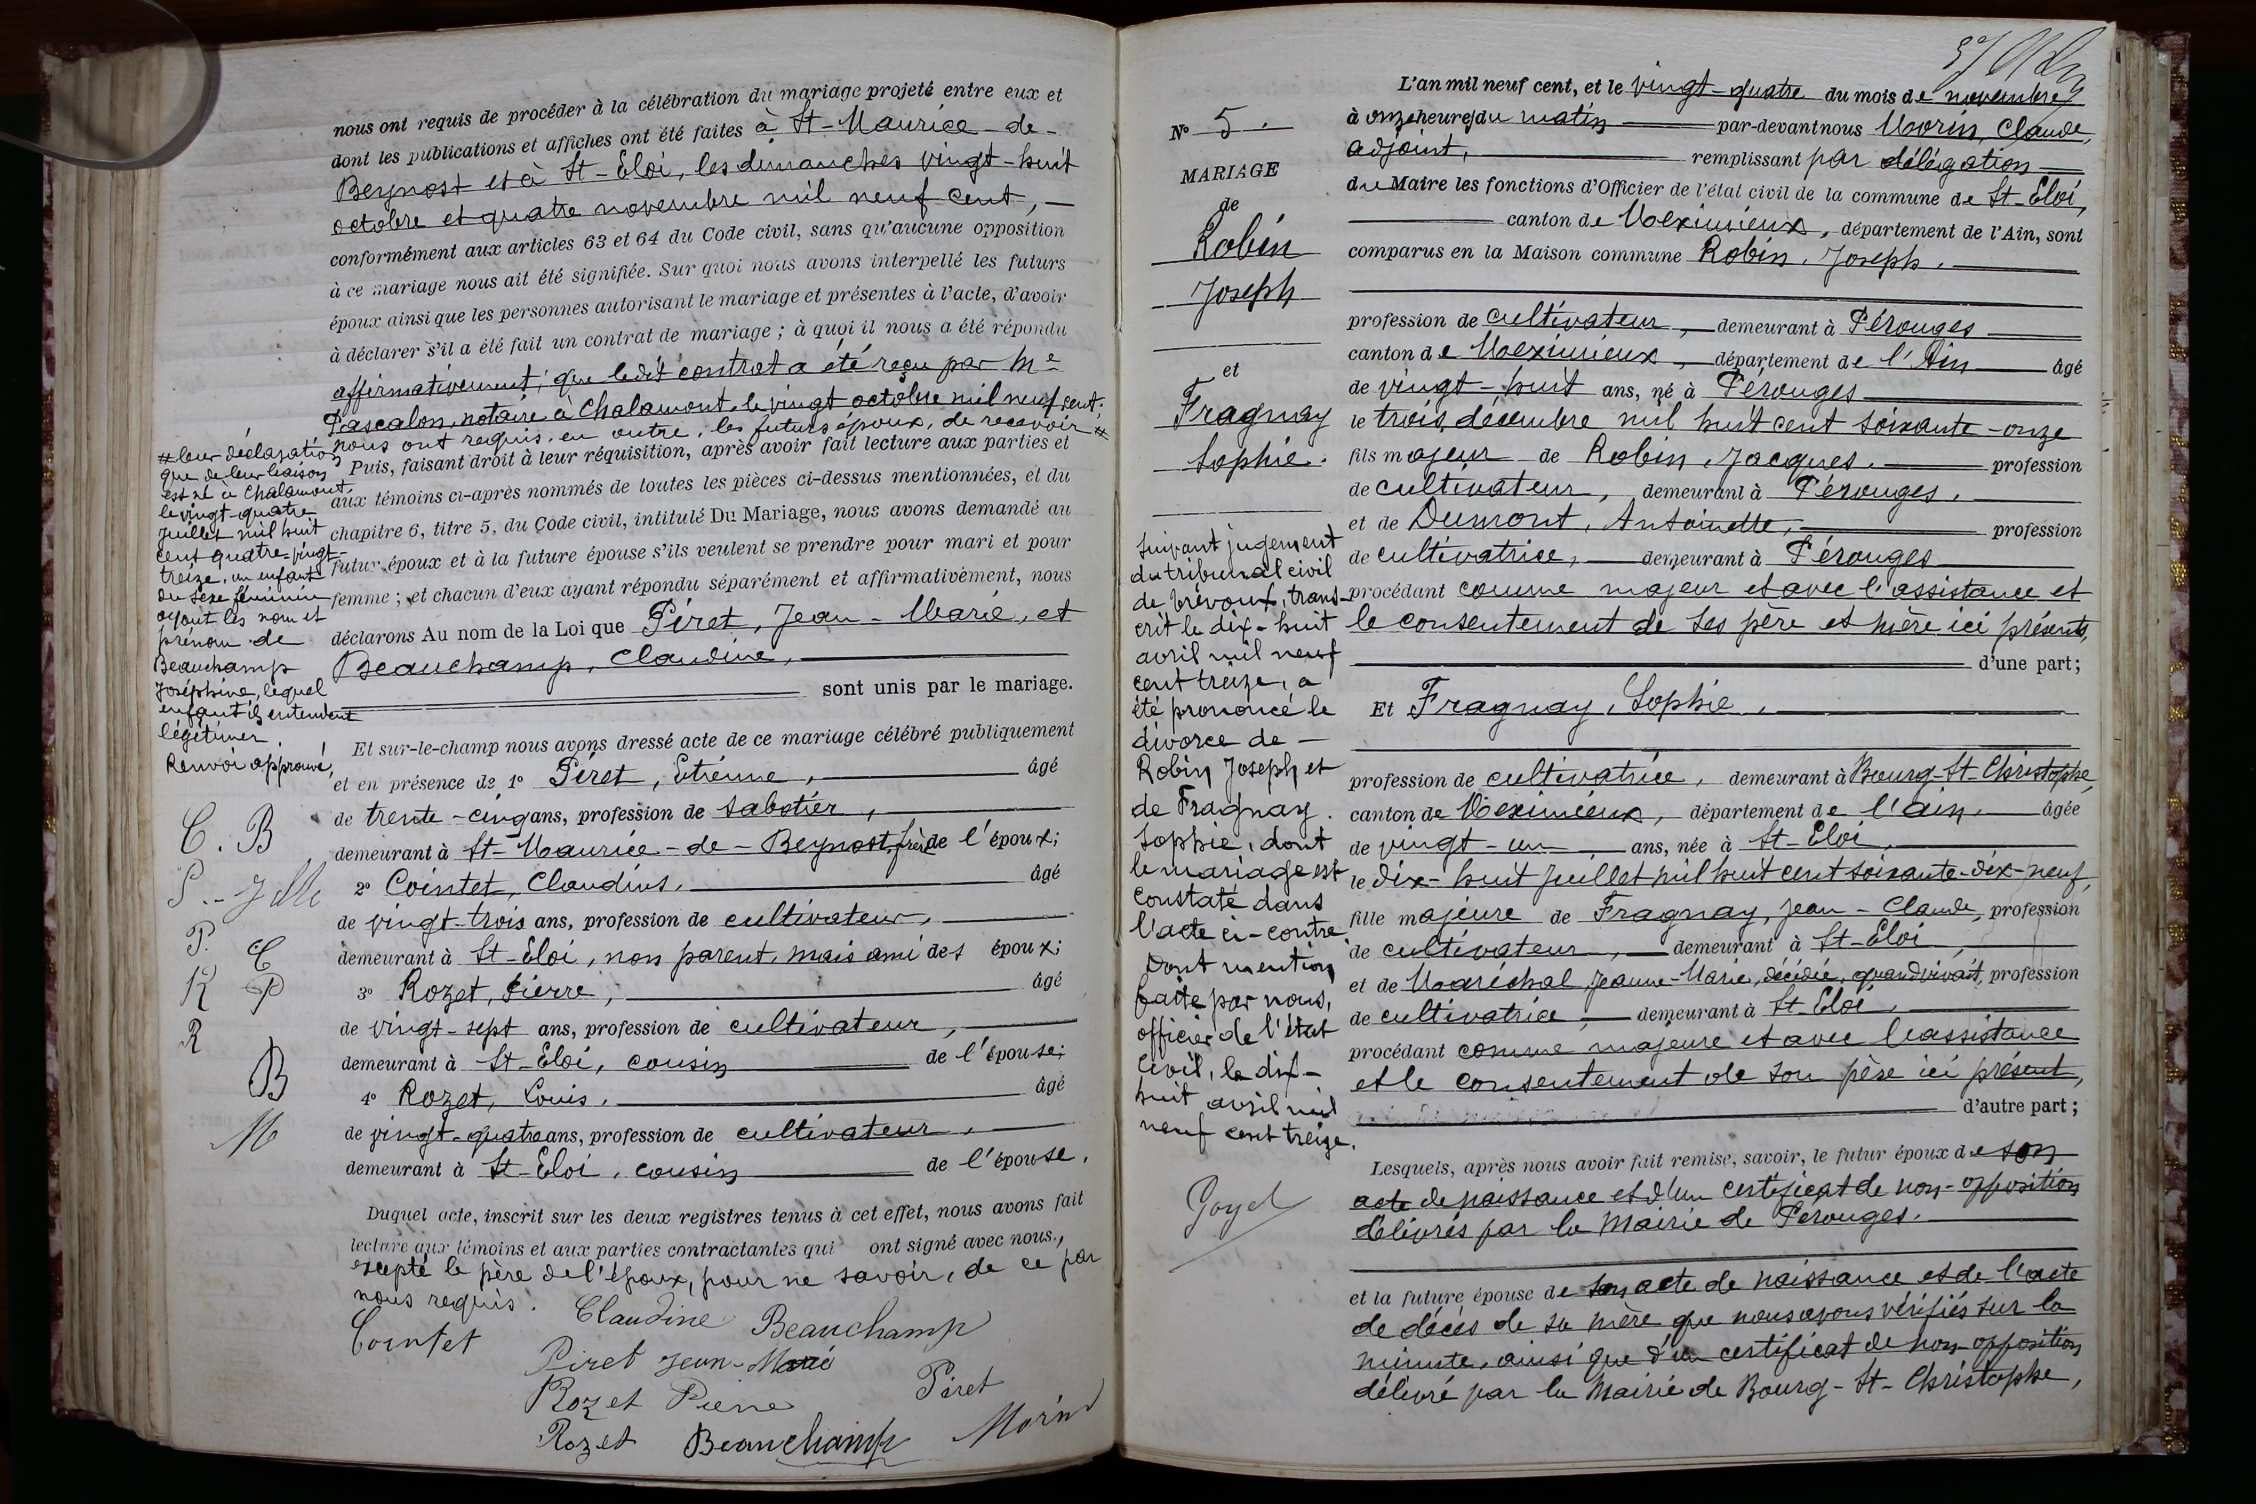 nous ont requis de procéder à la célébration du mariage projeté entre eux et
dont les publications et affiches ont été faites à St-Maurice-de-
Beynost et à St-Eloi, les dimanches vingt-huit
octobre et quatre novembre mil neuf cent,
conformément aux articles 63 et 64 du Code civil, sans qu'aucune opposition
à ce mariage nous ait été signifiée. Sur quoi nous avons interpellé les futurs
époux ainsi que les personnes autorisant le mariage et présentes à l'acte, d'avoir
à déclarer s'il a été fait un contrat de mariage ; à quoi il nous a été répondu
affirmativement ; que ledit contrat a été reçu par Me
Pascalon, notaire à Chalamont, le vingt octobre mil neuf cent ;
nous ont requis, en outre, les futurs époux, de recevoir #
Puis, faisant droit à leur réquisition, après avoir fait lecture aux parties et
aux témoins ci-après nommés de toutes les pièces ci-dessus mentionnées, et du
chapitre 6, titre 5, du Code civil, intitulé Du Mariage, nous avons demandé au
futur époux et à la future épouse s'ils veulent se prendre pour mari et pour
femme ; et chacun d'eux ayant répondu séparément et affirmativement, nous
déclarons Au nom de la Loi que Péret, Jean-Marie, et
Beauchamp, Claudine,
sont unis par le mariage.
Et sur-le-champ nous avons dressé acte de ce mariage célébré publiquement
et en présence de 1° Péret, Etienne, âgé
de trente-cinq ans, profession de sabotier,
demeurant à St-Maurice-de-Beynost, frère de l'époux ;
2° Cointet, Claudius, âgé
de vingt-trois ans, profession de cultivateur,
demeurant à St-Eloi, non parent, mais ami des époux ;
3° Rozet, Pierre, âgé
de vingt-sept ans, profession de cultivateur,
demeurant à St-Eloi, cousin de l'épouse ;
4° Rozet, Louis, âgé
de vingt-quatre ans, profession de cultivateur,
demeurant à St-Eloi, cousin de l'épouse.
Duquel acte, inscrit sur les deux registres tenus à cet effet, nous avons fait
lecture aux témoins et aux parties contractantes qui ont signé avec nous,
excepté le père de l'époux, pour ne savoir, de ce par
nous requis.
Claudine Beauchamp
Cointet
Piret Jean-Marie
Péret
Rozet Pierre
Rozet Beauchamp Morin
# leur déclaration
que de leur liaison
est né à Chalamont,
le vingt-quatre
juillet mil huit
cent quatre-vingt-
treize, un enfant
du sexe féminin
ayant les nom et
prénom de
Beauchamp
Joséphine, lequel
enfant ils entendent
légitimer.
Renvoi approuvé,
C. B
P. J M
P. C
R P
R
B
M
N° 5.
MARIAGE
de
Robin
Joseph
et
Fragnay
Sophie.
Suivant jugement
du tribunal civil
de Trévoux, trans-
crit le dix-huit
avril mil neuf
cent treize, a
été prononcé le
divorce de
Robin Joseph et
de Fragnay
Sophie, dont
le mariage est
constaté dans
l'acte ci-contre.
Dont mention
faite par nous,
officier de l'état
civil, le dix-
huit avril mil
neuf cent treize.
Goyet
L'an mil neuf cent, et le vingt-quatre du mois de novembre
à onze heures du matin par-devant nous Morin, Claude,
adjoint, remplissant par délégation
du Maire les fonctions d'Officier de l'état civil de la commune de St-Eloi,
canton de Meximieux, département de l'Ain, sont
comparus en la Maison commune Robin, Joseph,
profession de cultivateur, demeurant à Pérouges
canton de Meximieux, département de l'Ain âgé
de vingt-huit ans, né à Pérouges
le trois décembre mil huit cent soixante-onze
fils majeur de Robin, Jacques, profession
de cultivateur, demeurant à Pérouges,
et de Dumont, Antoinette, profession
de cultivatrice, demeurant à Pérouges
procédant comme majeur et avec l'assistance et
le consentement de ses père et mère ici présents,
d'une part ;
Et Fragnay, Sophie,
profession de cultivatrice, demeurant à Bourg-St-Christophe,
canton de Meximieux, département de l'Ain, âgée
de vingt-un ans, née à St-Eloi,
le dix-huit juillet mil huit cent soixante-dix-neuf,
fille majeure de Fragnay, Jean-Claude, profession
de cultivateur, demeurant à St-Eloi,
et de Maréchal Jeanne-Marie, décédée, quand vivait, profession
de cultivatrice, demeurant à St-Eloi,
procédant comme majeure et avec l'assistance
et le consentement de son père ici présent,
d'autre part ;
Lesquels, après nous avoir fait remise, savoir, le futur époux de son
acte de naissance et d'un certificat de non-opposition
délivrés par la Mairie de Pérouges.
et la future épouse de son acte de naissance et de l'acte
de décès de sa mère que nous avons vérifiés sur la
minute, ainsi que d'un certificat de non-opposition
délivré par la Mairie de Bourg-St-Christophe,